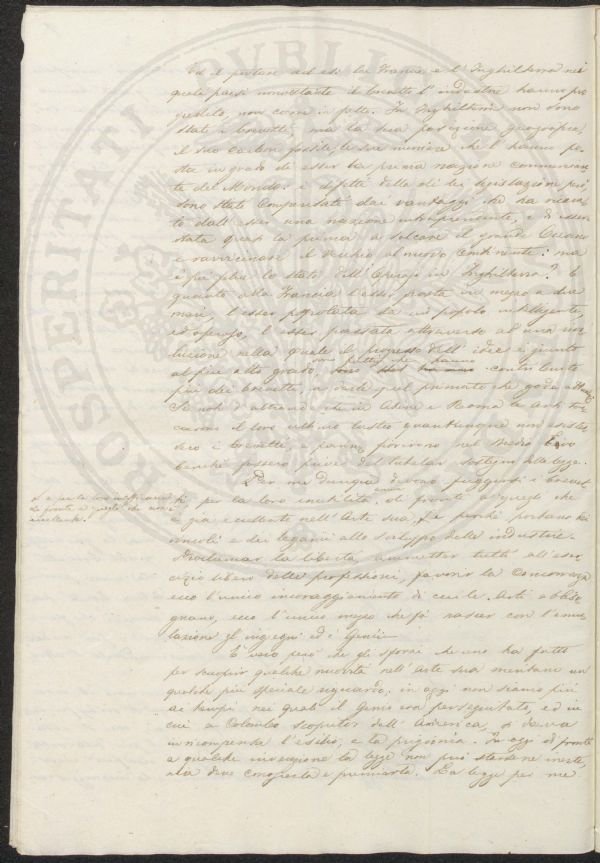 PROSPERITATI PVBLICAE
Ed il portare ad es. la Francia e l'Inghilterra nei
quali paesi nonostante il brevetto l'industrie hanno pro
gredito, non corre in fatto. In Inghilterra non sono
stati i brevetti, ma la sua posizione geografica,
il suo carbon fossile, le sue miniere che l'hanno po
sta in grado di esser la prima nazione commercian
te del Mondo: i difetti della di lei legislazione poi
sono stati compensati dai vantaggi che ha ricava
to dall'esser una nazione intraprendente, e di esser
stata quasi la prima a solcare il grande Oceano
e ravvicinare il vecchio al nuovo Continente: ma
è poi felice lo stato dell'Operajo in Inghilterra? E
quanto alla Francia l'esser posta in mezzo a due
mari, l'esser popolata da un popolo intelligente,
ed operajo, l'esser passata attraverso ad una rivo
luzione nella quale il progresso dell'idee è giunto
al più alto grado, sono fattori che hanno contribuito
più dei brevetti, a quel primato che gode
Se noti d'altronde che in Atene e Roma le Arti toc
carono il loro ultimo lustro quantunque non esistes
sero i brevetti, fanno nel Medio Evo
benché fossero prive del tutelar sostegno della legge.
Per me dunque devono fuggirsi i brevet
ti per la loro inutilità di fronte a quegli che
è già eccellente nell'Arte sua, e perché portano vin
coli e dei legami allo sviluppo delle industrie.
Proclamar la libertà, ammetter tutti all'eser
cizio libero delle professioni, favorir la Concorrenza
ecco l'unico incoraggiamento di cui le Arti abbiso
gnano, ecco l'unico mezzo che fa nascer con l'emu
lazione gl'ingegni ed i Genii.
È vero però che gli sforzi che uno ha fatto
per scuoprir qualche novità nell'Arte sua meritano un
qualche più speciale riguardo: in oggi non siamo più
ai tempi nei quali il Genio era perseguitato, ed in
cui a Colombo scopritor dell'America, si dava
in ricompensa l'esilio, e la prigionia. In oggi di fronte
a qualche invenzione la legge non può starsene inerte,
ma deve compiacerla e premiarla. La legge per me